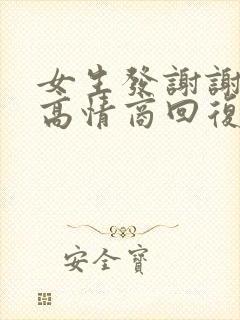 女生發謝謝
高情商回復
安全寶